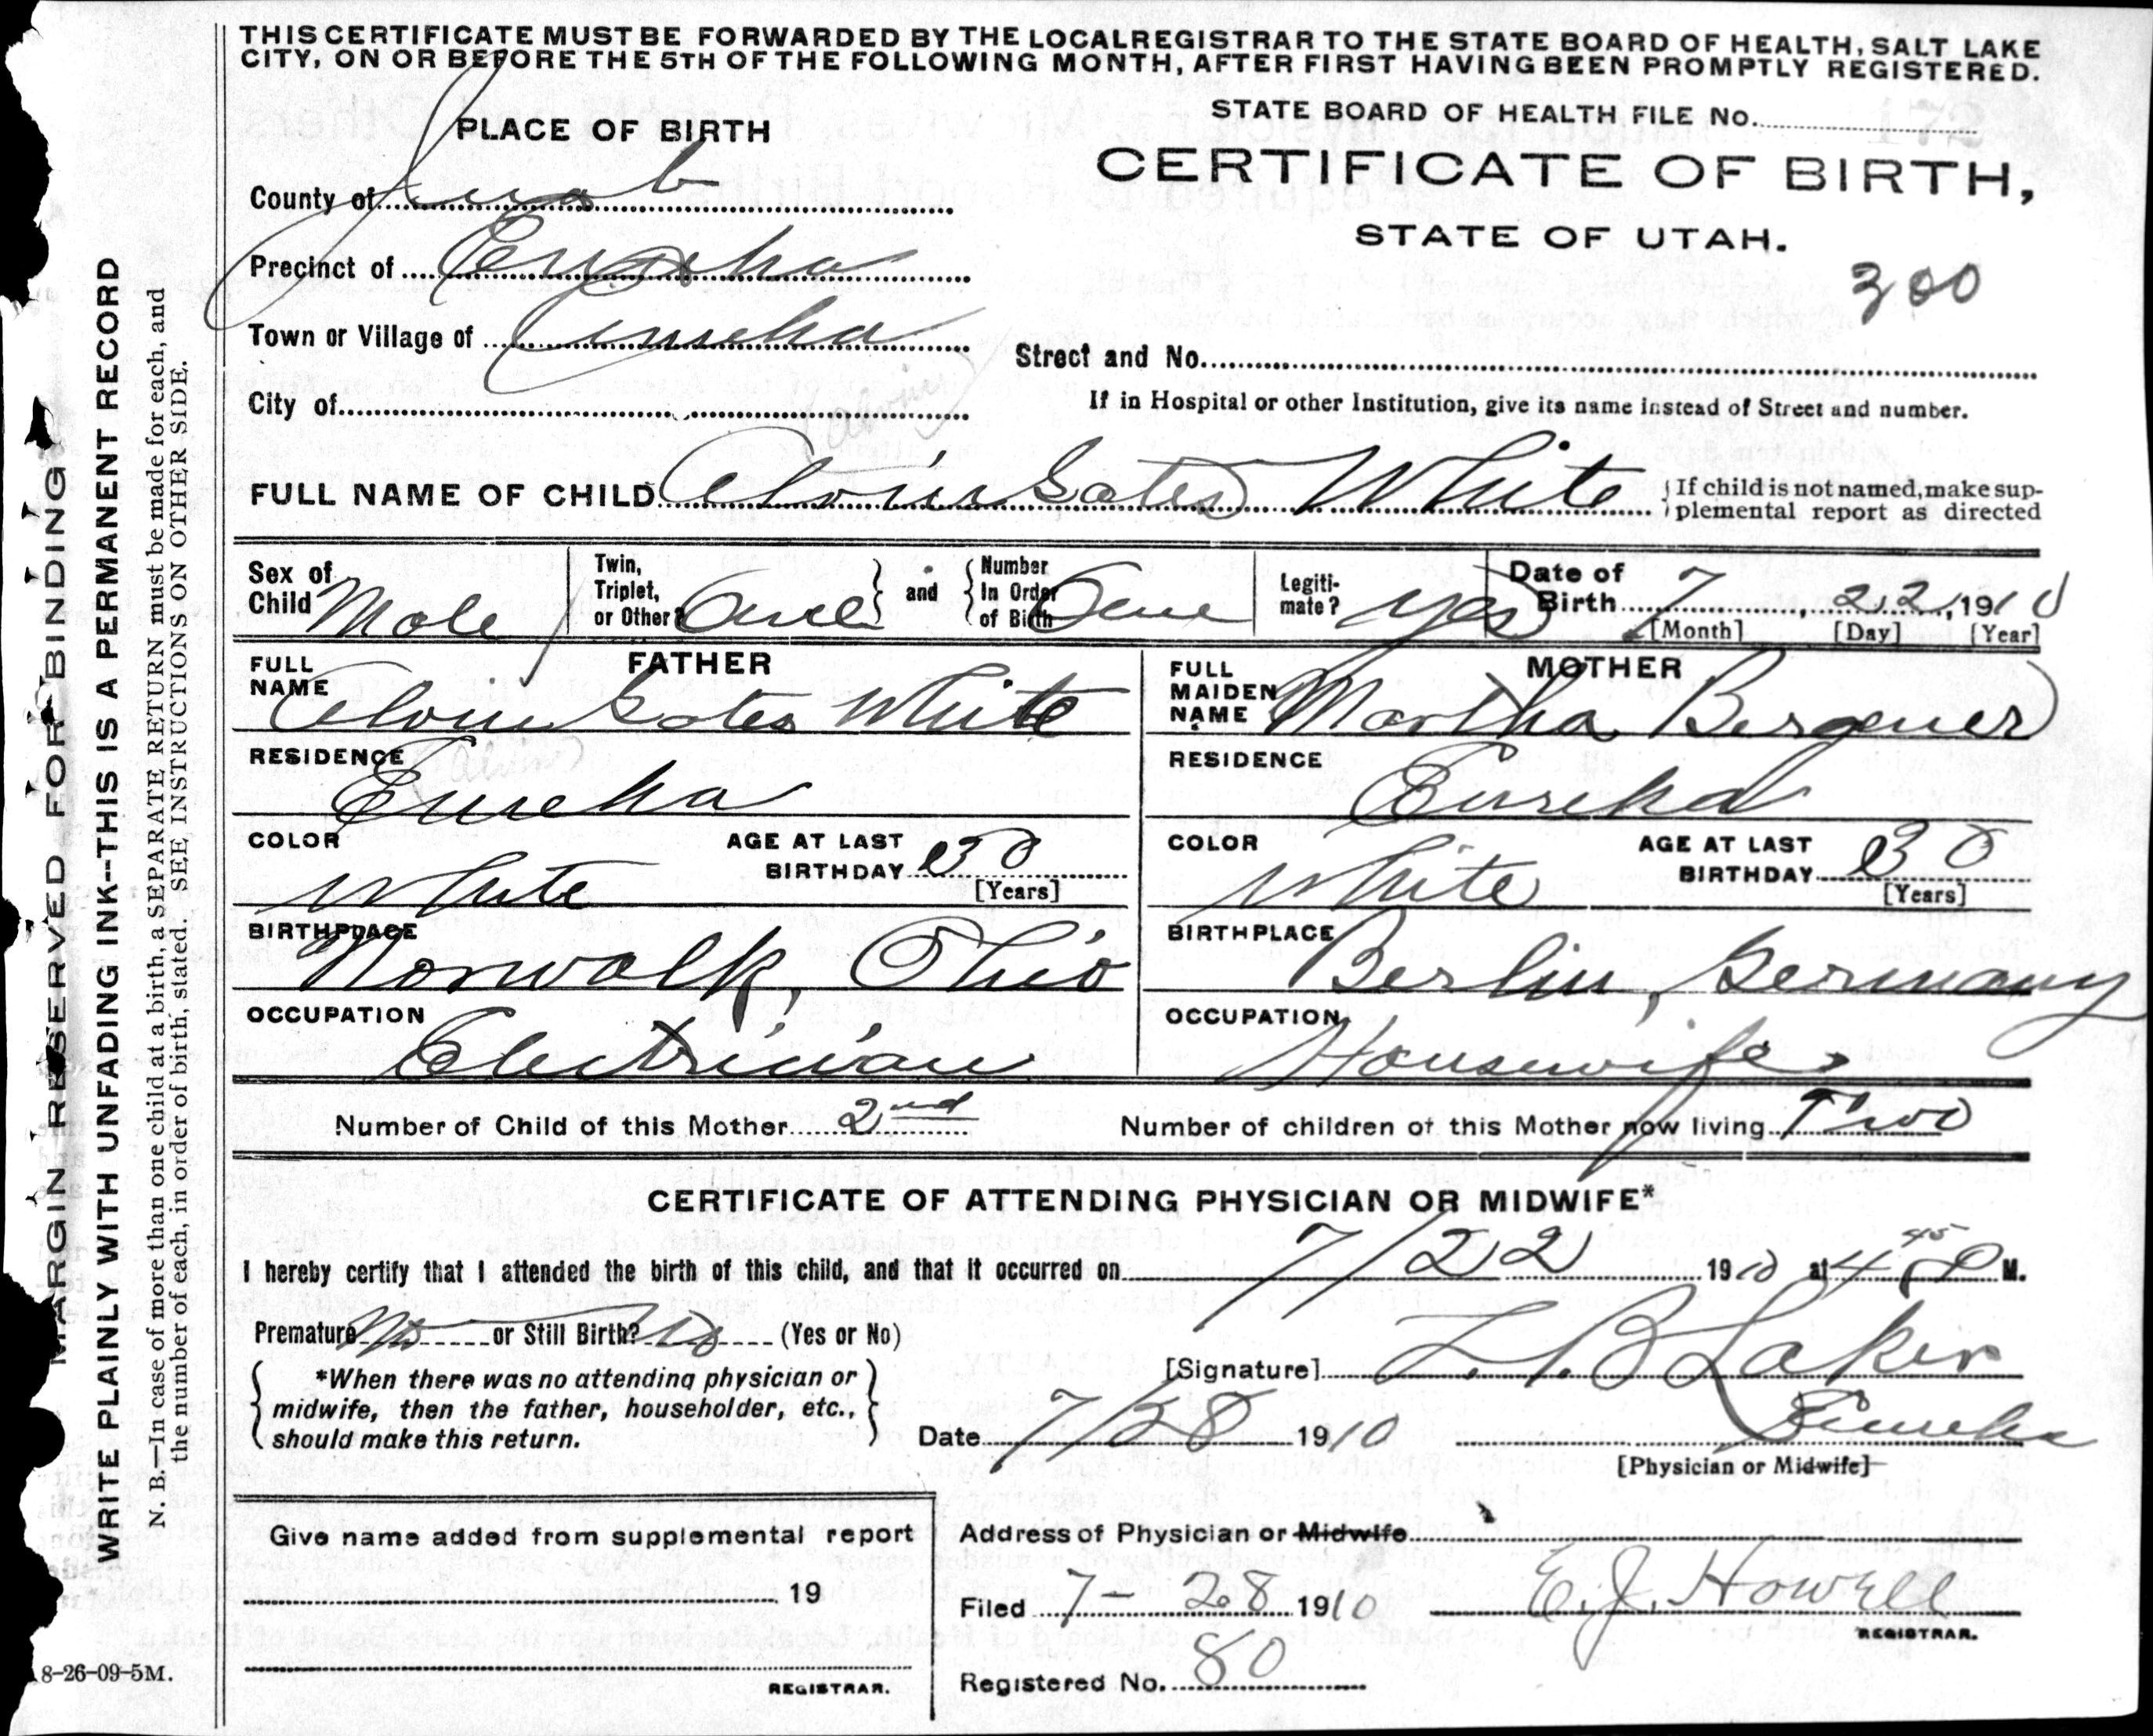 THIS CERTIFICATE MUST BE FORWARDED BY THE LOCAL REGISTRAR TO THE STATE BOARD OF HEALTH, SALT LAKE
CITY, ON OR BEFORE THE 5TH OF THE FOLLOWING MONTH, AFTER FIRST HAVING BEEN PROMPTLY REGISTERED.
STATE BOARD OF HEALTH FILE No.
PLACE OF BIRTH
CERTIFICATE OF BIRTH,
STATE OF UTAH.
300
County of Juab
Precinct of Eureka
Town or Village of Eureka
Street and No.
City of
If in Hospital or other Institution, give its name instead of Street and number.
(alvin)
FULL NAME OF CHILD Alvin Gates White
If child is not named, make sup-
plemental report as directed
Sex of Child Male
Twin, Triplet, or Other? One and Number In Order of Birth One
Legiti-mate? yes
Date of Birth 7, 22, 1910
[Month] [Day] [Year]
FATHER
FULL NAME Alvin Gates White
(alvin)
RESIDENCE Eureka
COLOR White
AGE AT LAST BIRTHDAY 30
[Years]
BIRTHPLACE Norwalk, Ohio
OCCUPATION Electrician
MOTHER
FULL MAIDEN NAME Martha Bergener
RESIDENCE Eureka
COLOR White
AGE AT LAST BIRTHDAY 30
[Years]
BIRTHPLACE Berlin, Germany
OCCUPATION Housewife
Number of Child of this Mother 2nd
Number of children of this Mother now living Two
CERTIFICATE OF ATTENDING PHYSICIAN OR MIDWIFE*
I hereby certify that I attended the birth of this child, and that it occurred on 7/22 1910 at 4 45 P M.
Premature No or Still Birth? No (Yes or No)
*When there was no attending physician or
midwife, then the father, householder, etc.,
should make this return.
[Signature] L. B. Laker
Date 7/28 1910
Eureka
[Physician or Midwife]
Give name added from supplemental report
19
REGISTRAR.
Address of Physician or Midwife
Filed 7-28 1910
E. J. Howell
REGISTRAR.
Registered No. 80
MARGIN RESERVED FOR BINDING
WRITE PLAINLY WITH UNFADING INK--THIS IS A PERMANENT RECORD
N. B.—In case of more than one child at a birth, a SEPARATE RETURN must be made for each, and
the number of each, in order of birth, stated. SEE INSTRUCTIONS ON OTHER SIDE.
8-26-09-5M.